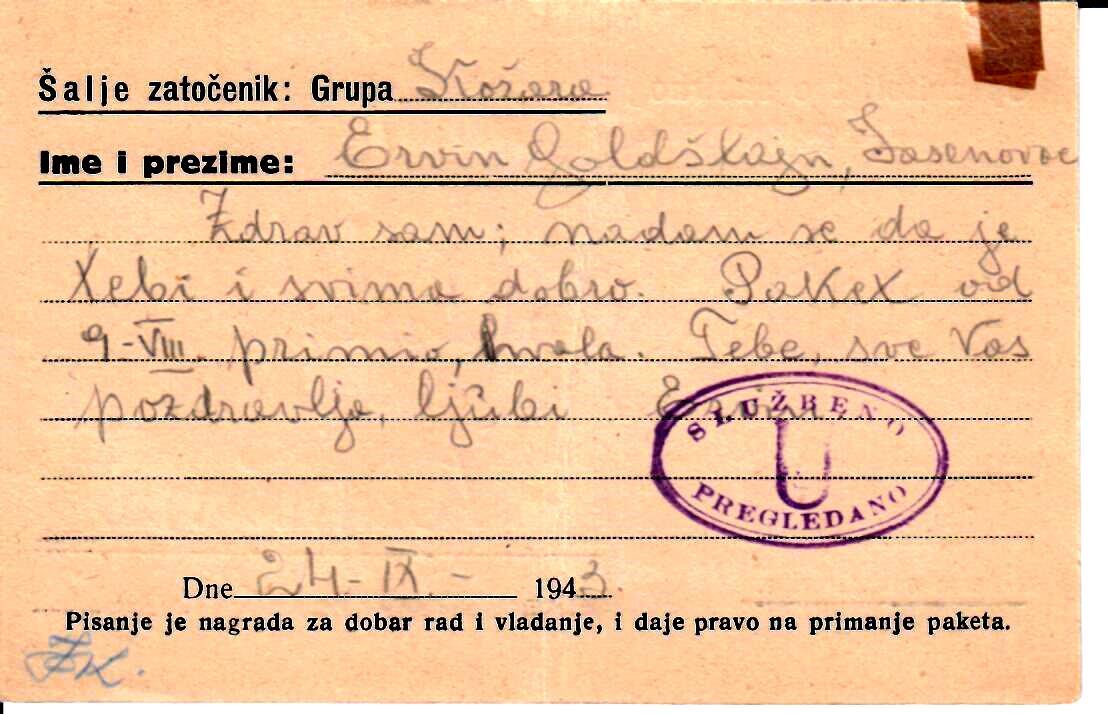 Šalje zatočenik: Grupa Kožara
Ime i prezime: Ervin Goldštajn, Jasenovac
Zdrav sam; nadam se da je
tebi i svima dobro. Paket od
9-VIII. primio, hvala. Tebe, sve Vas
pozdravlja, ljubi Ervin
SLUŽBENO
U
PREGLEDANO
Dne 24-IX- 1943.
Pisanje je nagrada za dobar rad i vladanje, i daje pravo na primanje paketa.